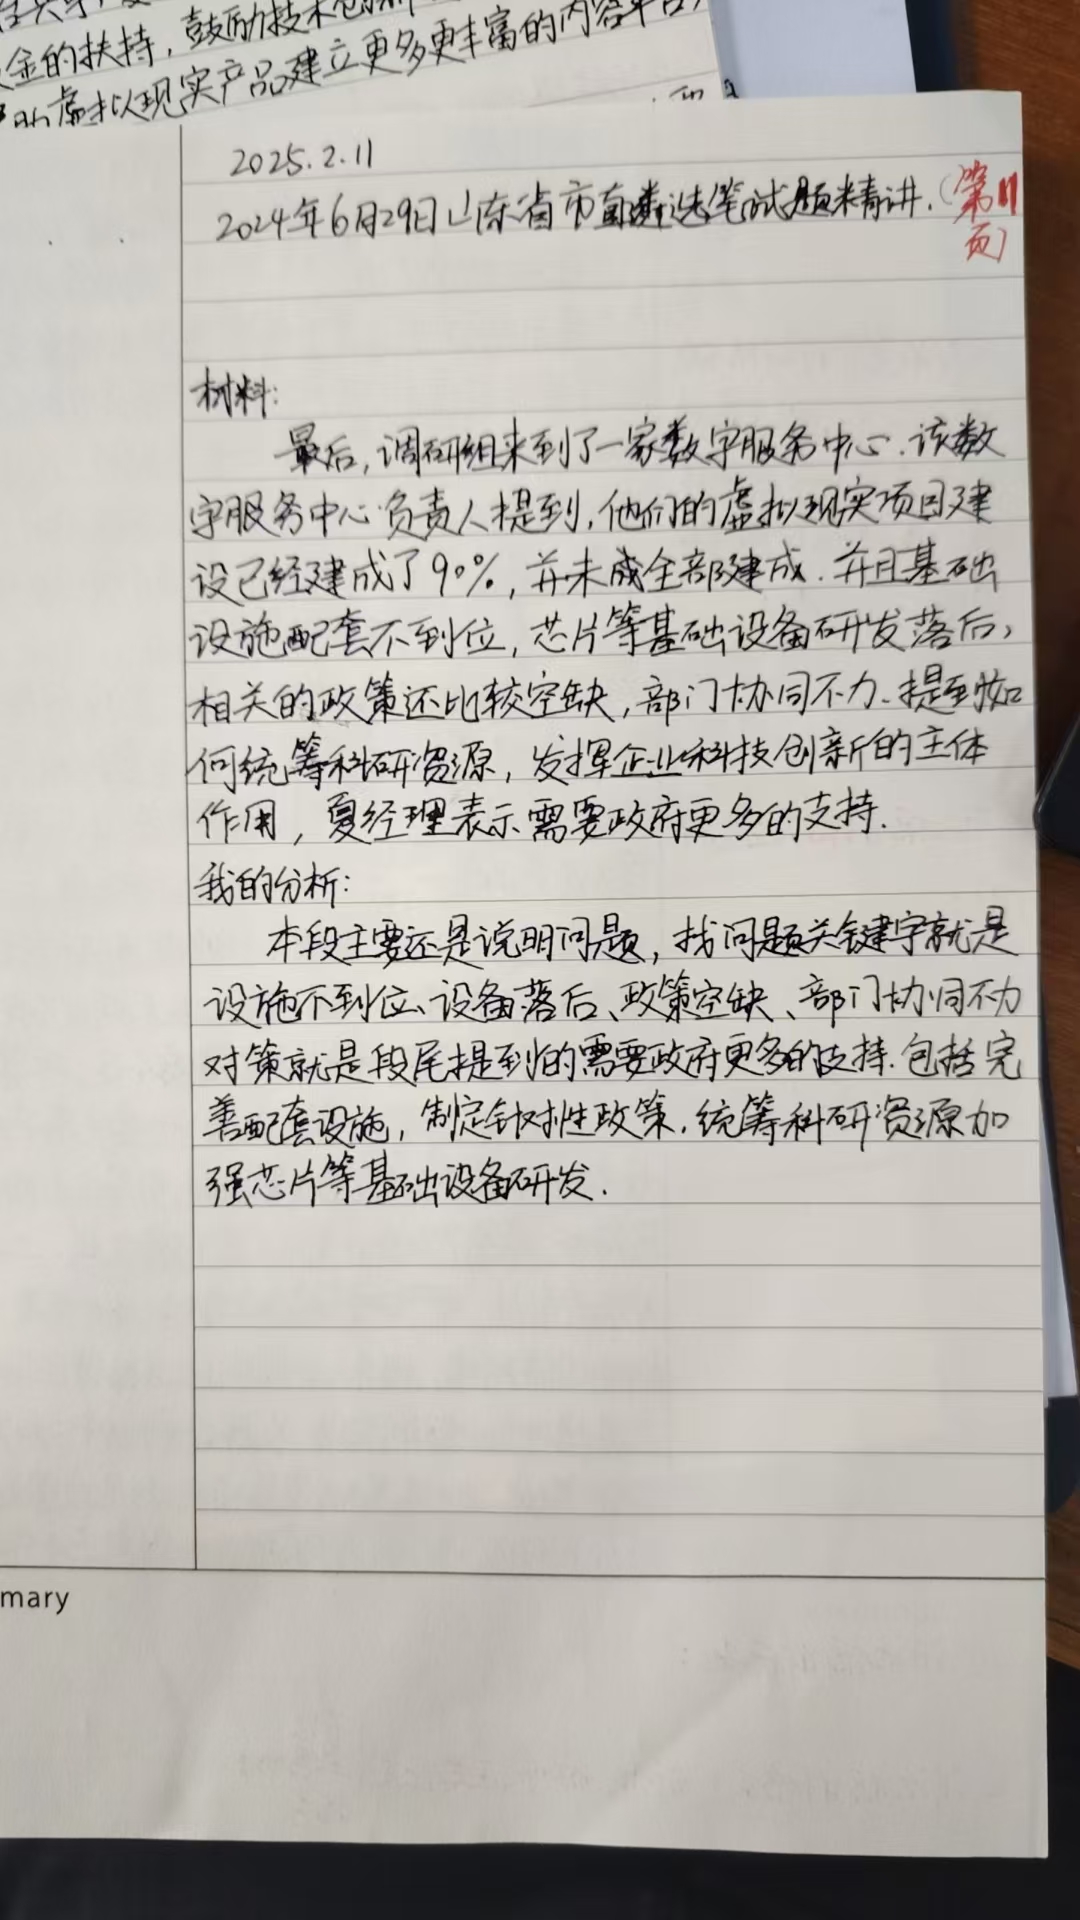 金的扶持，鼓励技术创新
虚拟现实产品建立更多更丰富的内容平台
2025.2.11
2024年6月29日山东省市直遴选笔试题精讲.（第11页）
材料：
最后，调研组来到了一家数字服务中心.该数
字服务中心负责人提到，他们的虚拟现实项目建
设已经建成了90%，并未成全部建成.并且基础
设施配套不到位，芯片等基础设备研发落后，
相关的政策还比较空缺，部门协同不力.提到如
何统筹科研资源，发挥企业科技创新的主体
作用，夏经理表示需要政府更多的支持.
我的分析：
本段主要还是说明问题，找问题关键字就是
设施不到位、设备落后、政策空缺、部门协同不力
对策就是段尾提到的需要政府更多的支持.包括完
善配套设施，制定针对性政策.统筹科研资源加
强芯片等基础设备研发.
mary